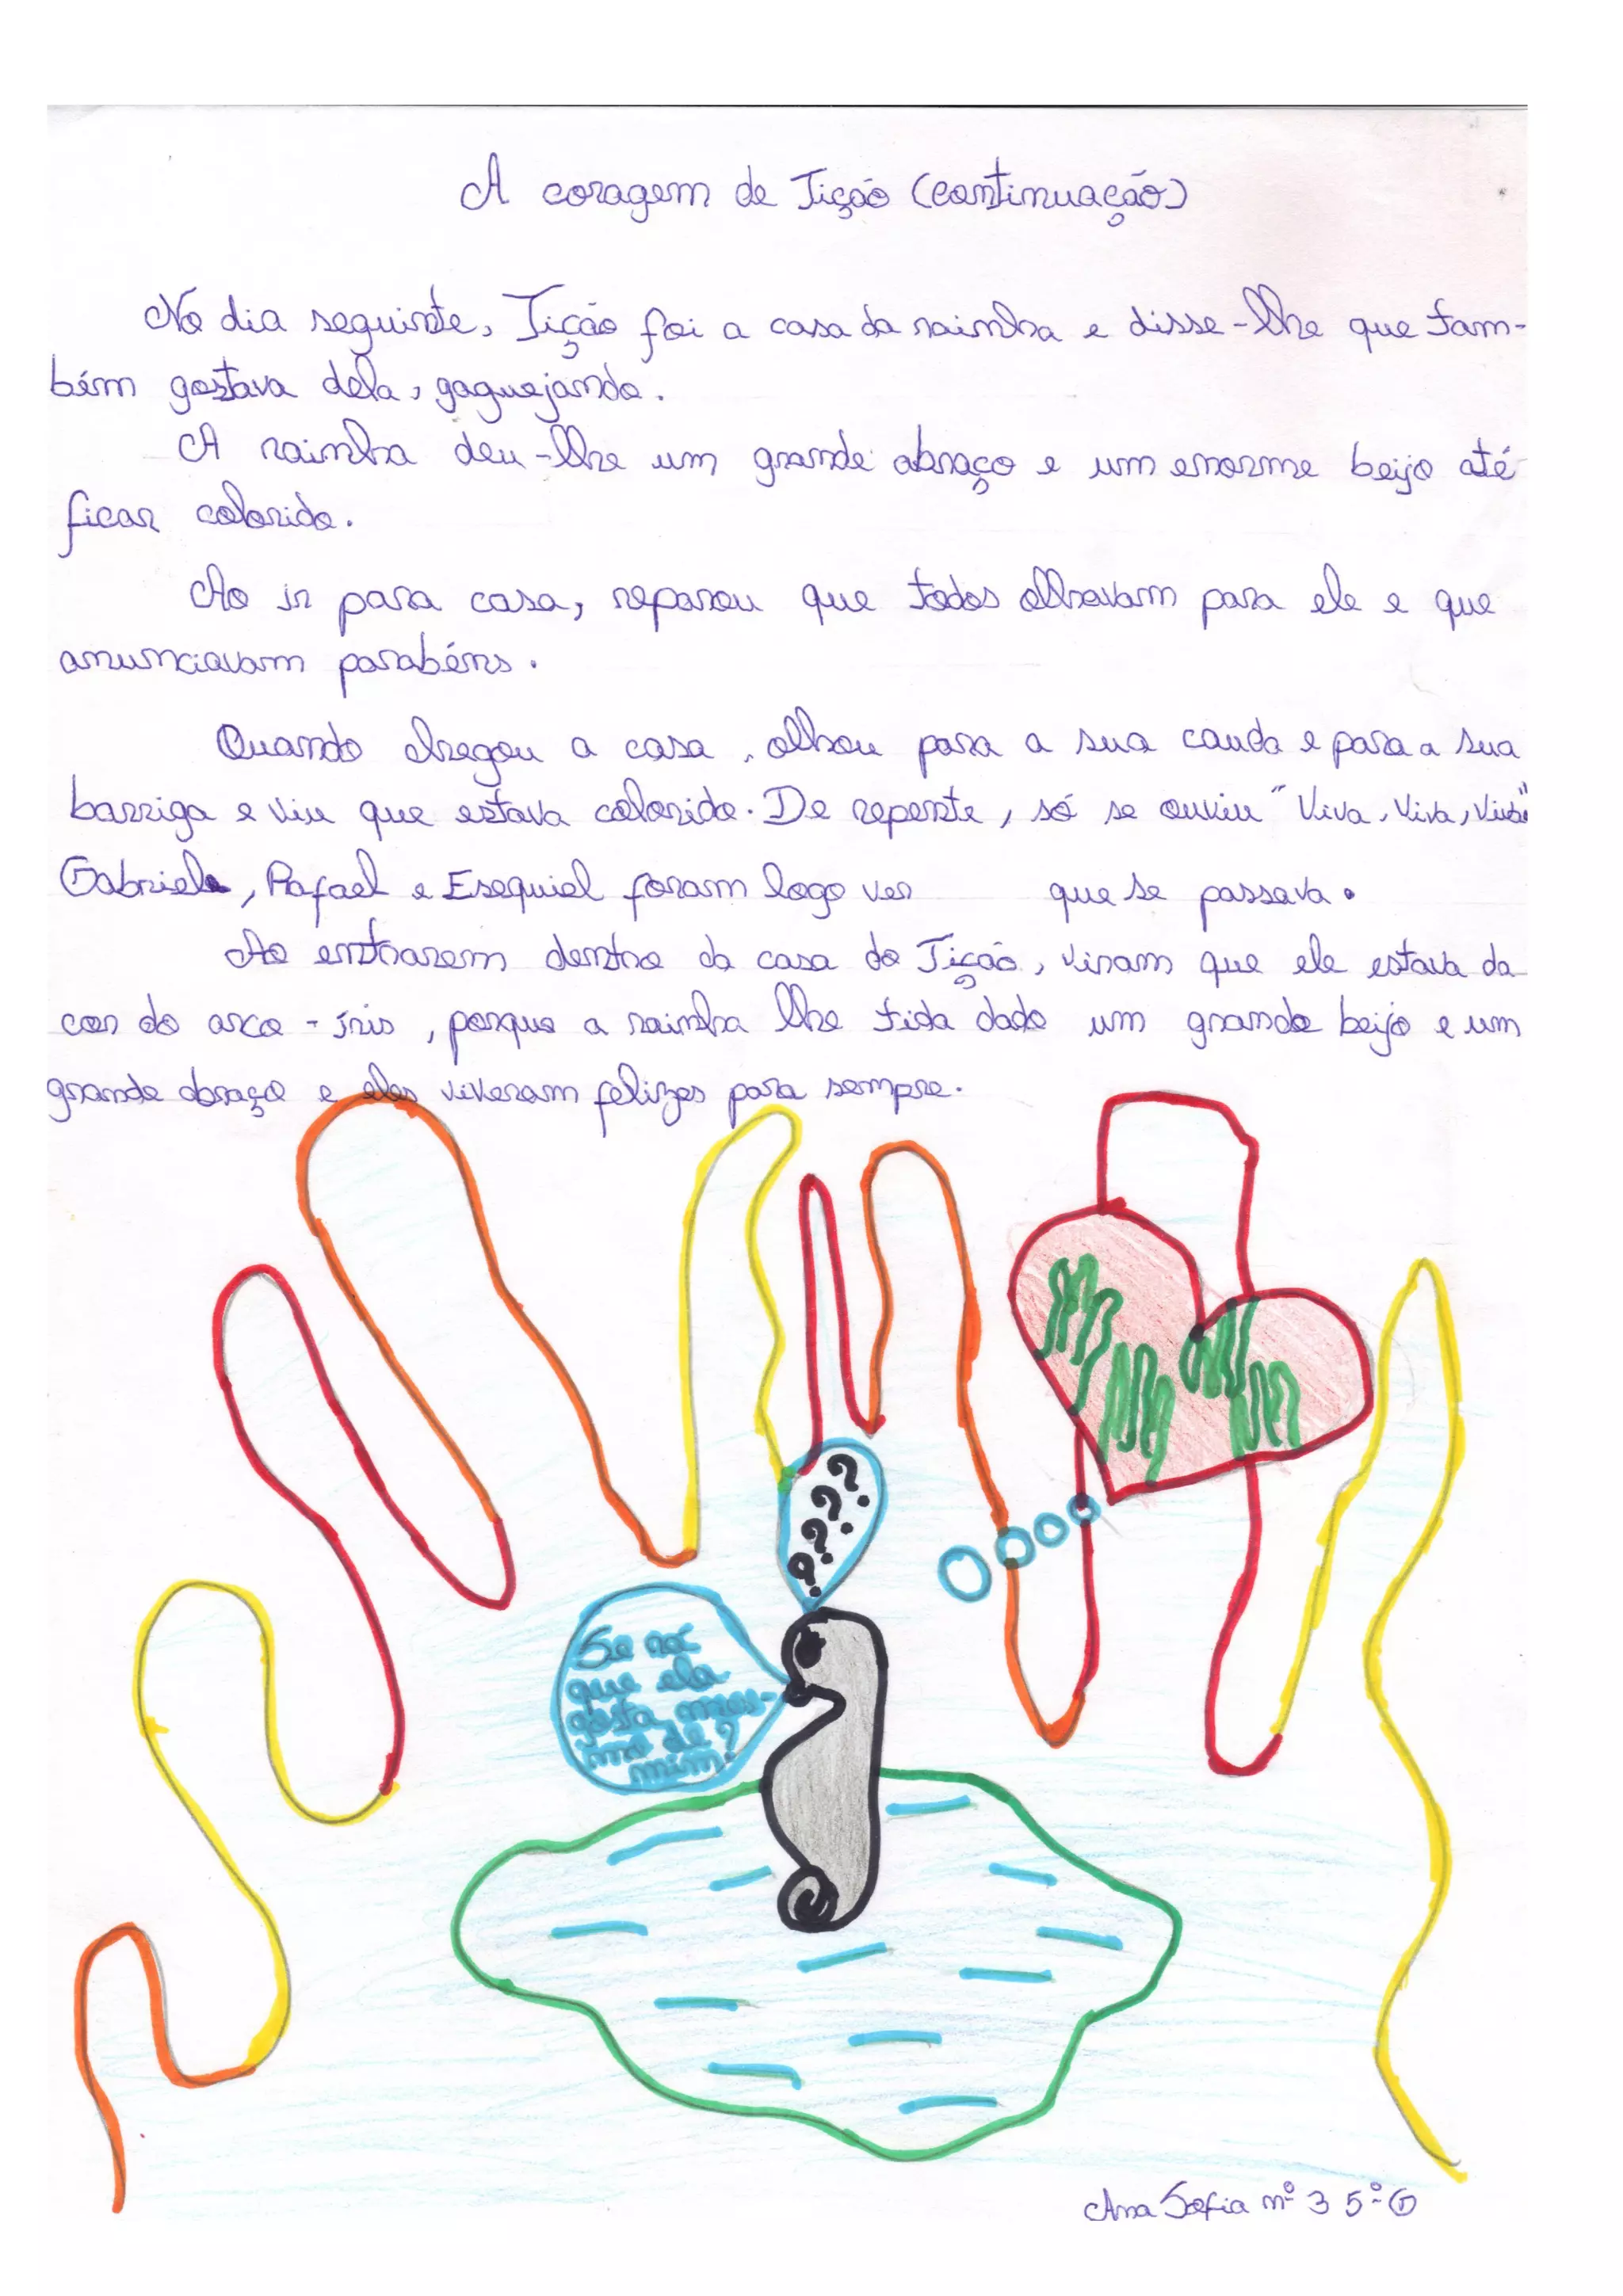 A coragem de Tição (continuação)
No dia seguinte, Tição foi a casa da rainha e disse-lhe que tam-
bém gostava dela, gaguejando.
A rainha deu-lhe um grande abraço e um enorme beijo até
ficar colorido.
Ao ir para casa, reparou que todos olhavam para ele e que
anunciavam parabéns.
Quando chegou a casa, olhou para a sua cauda e para a sua
barriga e viu que estava colorido. De repente, só se ouviu "Viva, Viva, Viva"
Gabriela, Rafael e Esequiel foram logo ver que se passava.
Ao entrarem dentro da casa do Tição, viram que ele estava da
cor do arco-íris, porque a rainha lhe tida dado um grande beijo e um
grande abraço e eles viveram felizes para sempre.
????
Se rá
que ela
gosta mes-
mo de
mim?
Ana Sofia nº 3 5º G